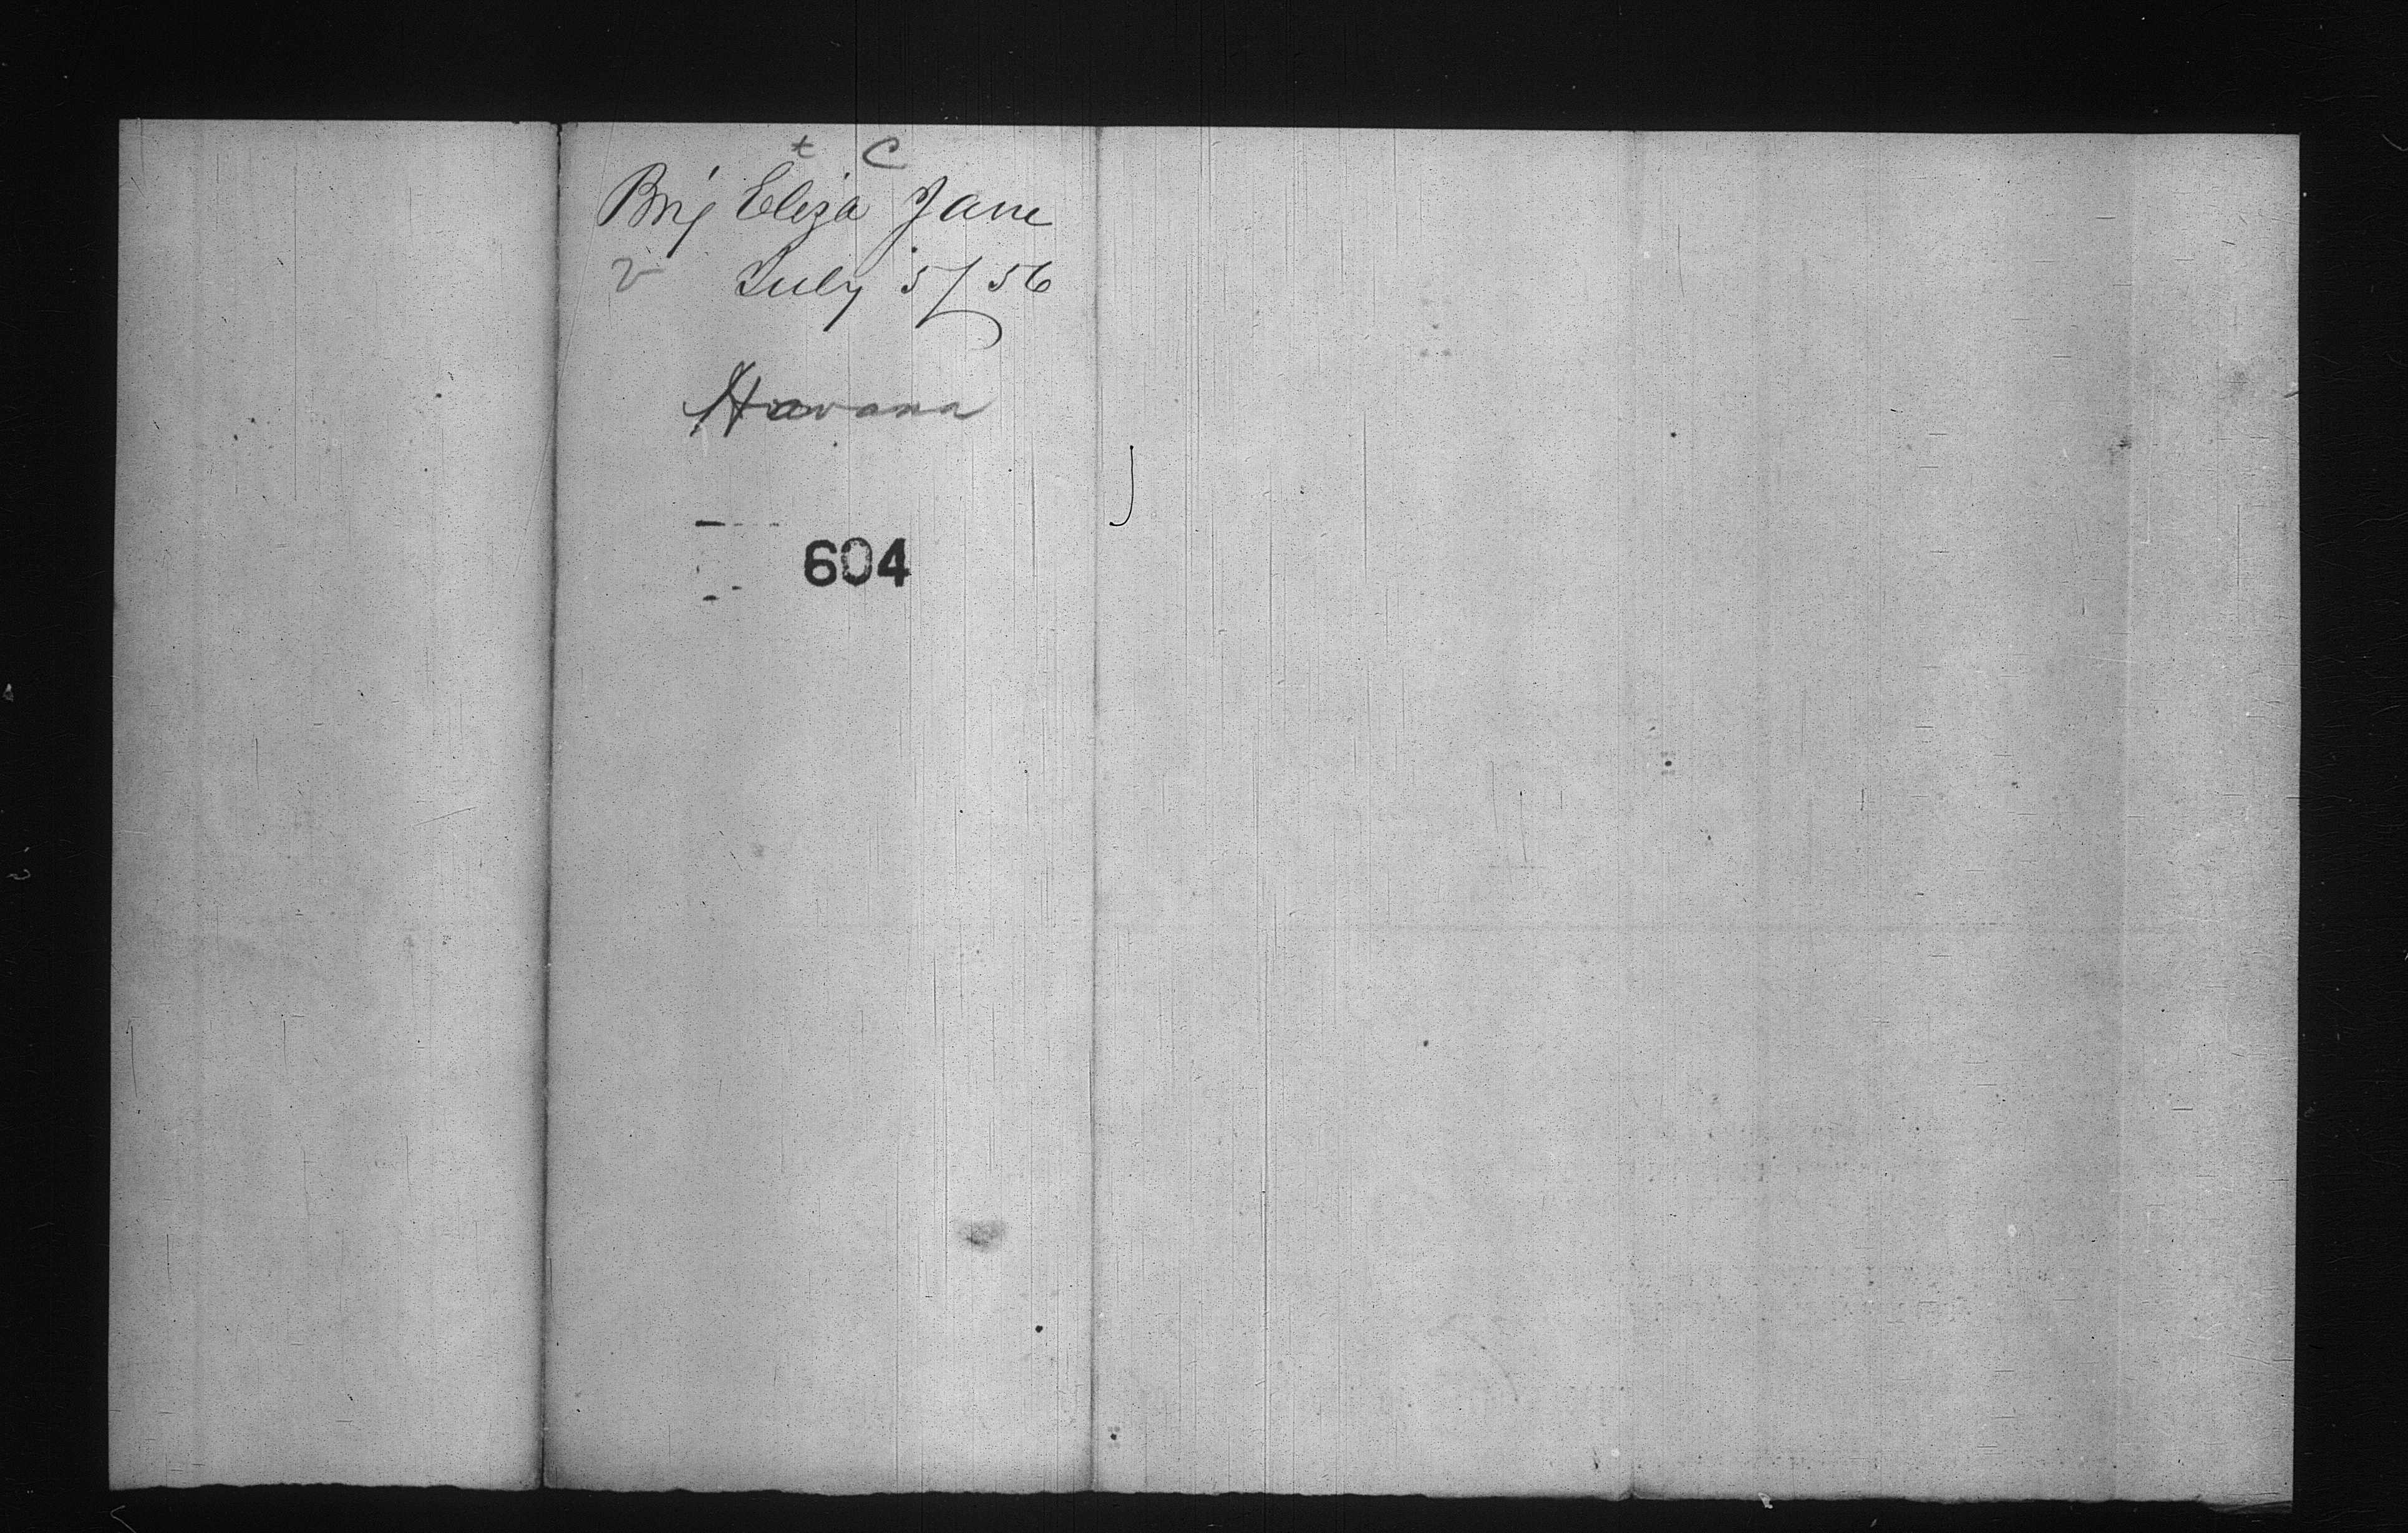 t C
Brig Eliza Jane
2 July 5/56
Havana
604